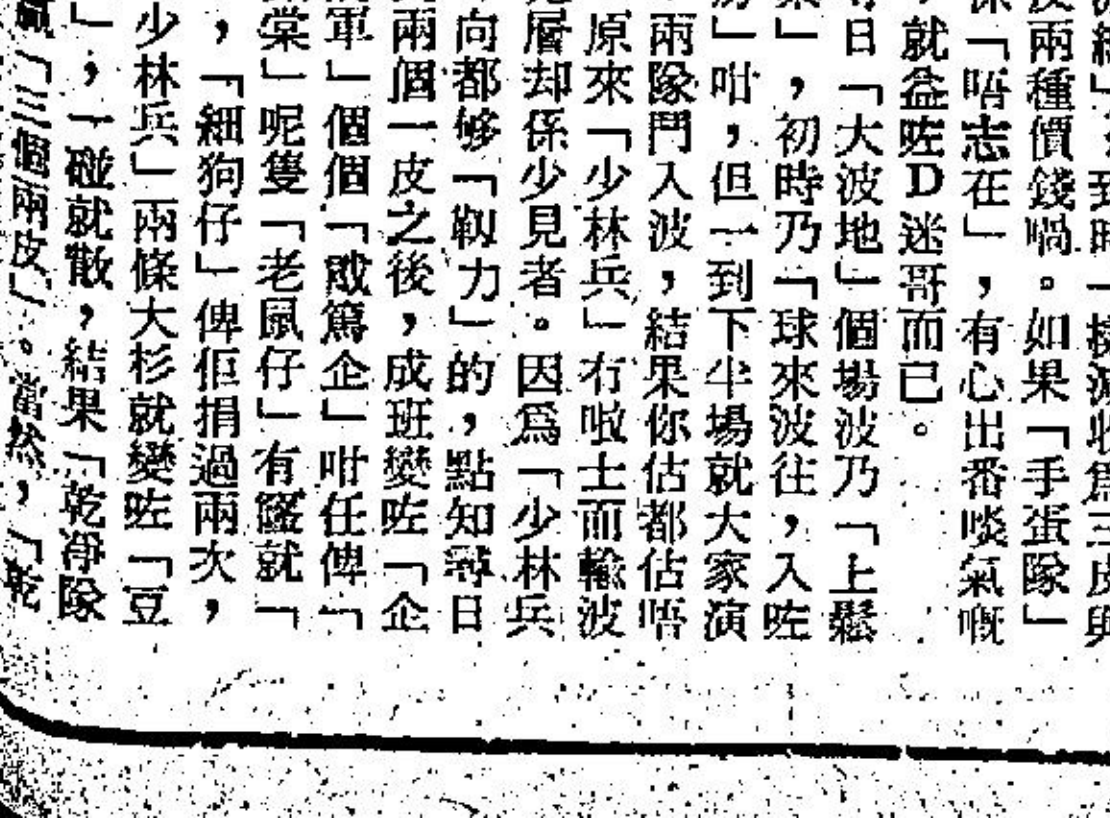 到時一
皮兩種價錢喎。如果「手蛋隊」
係「唔志在」，有心出番啖氣嘅
，就益咗D迷哥而已。
日「大波地」個場波乃「上鬆
」，初時乃「球來波往，入咗
」咁，但一到下半場就大家演
兩隊鬥入波，結果你估都估唔
原來「少林兵」冇啦士而輸波
層却係少見者。因爲「少林兵
向都够「靱力」的，點知尋日
兩個一皮之後，成班變咗「企
軍」個個「戙篤企」咁任俾「
棠」呢隻「老鼠仔」有窿就「
，「細狗仔」俾佢捐過兩次，
少林兵」兩條大杉就變咗「豆
」，一碰就散，結果「乾淨隊
贏「三個兩皮」。當然，「乾